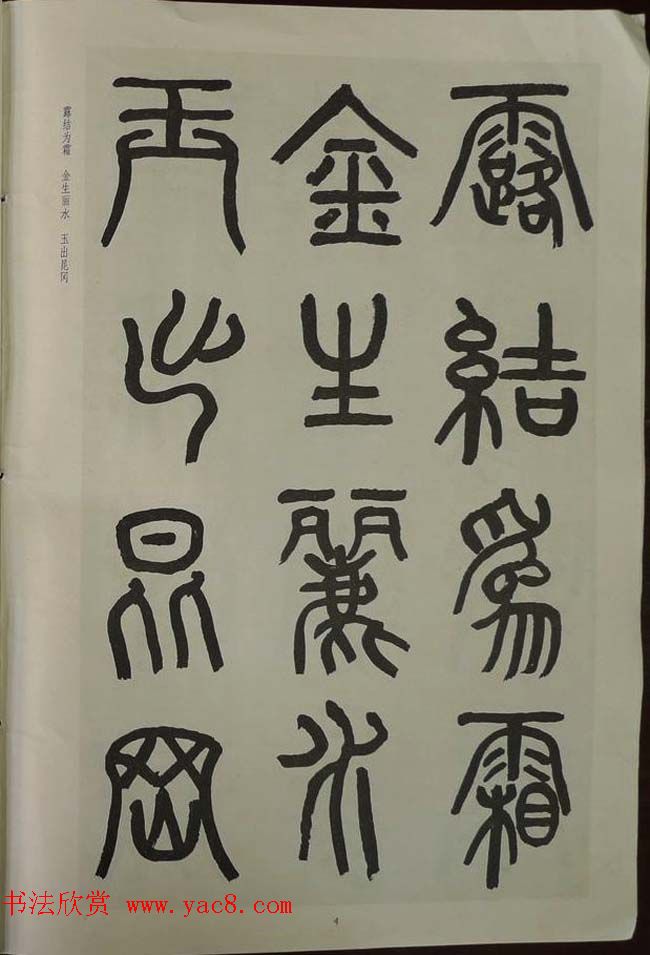 露結為霜
金生麗水
玉出昆岡
露结为霜 金生丽水 玉出昆冈
4
书法欣赏 www.yac8.com